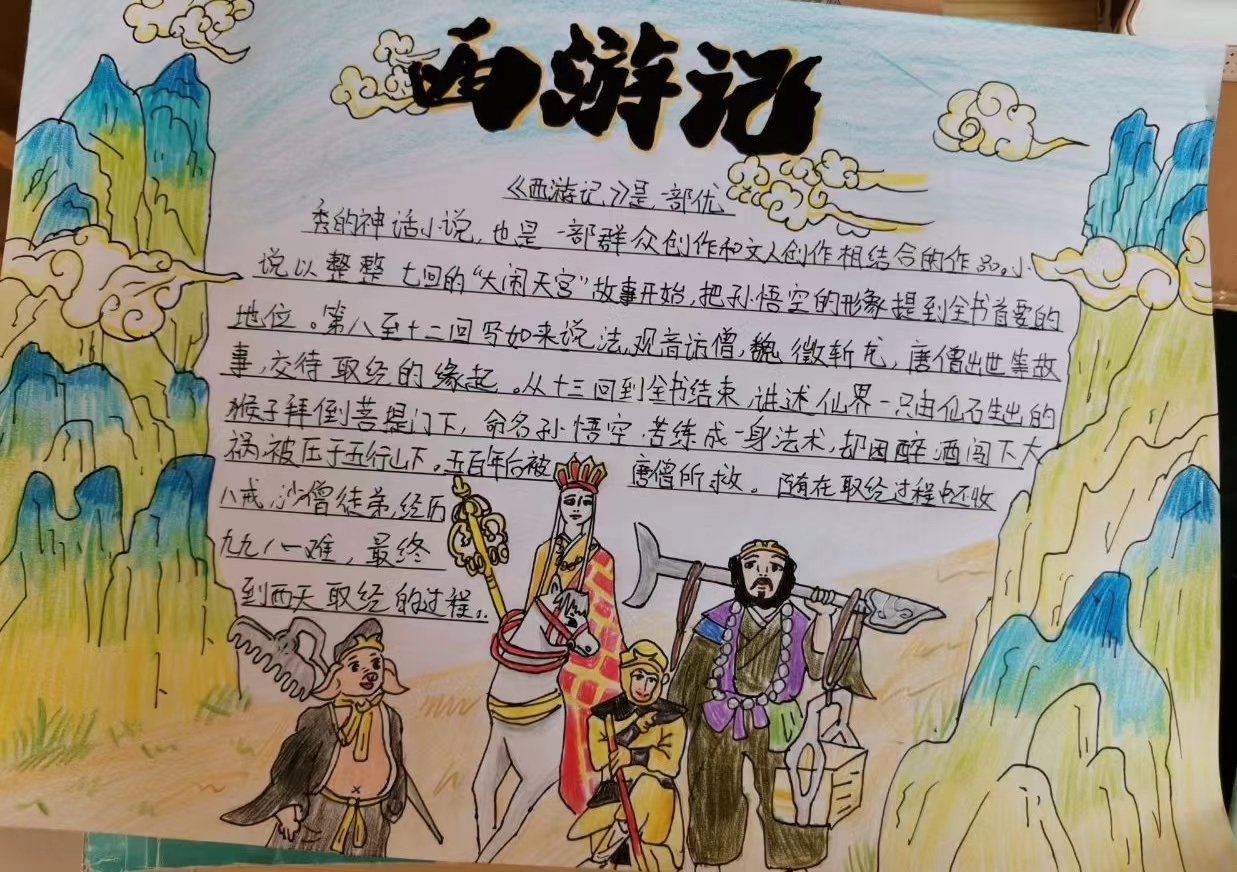 西游记
《西游记》是一部优
秀的神话小说,也是一部群众创作和文人创作相结合的作品。小
说以整整七回的“大闹天宫”故事开始,把孙悟空的形象提到全书首要的
地位。第八至十二回写如来说法,观音访僧,魏徵斩龙,唐僧出世等故
事,交待取经的缘起。从十三回到全书结束,讲述仙界一只由仙石生出的
猴子拜倒菩提门下,命名孙悟空,苦练成一身法术,却因醉酒闯下大
祸,被压于五行山下。五百年后被唐僧所救。随在取经过程中还收
八戒,沙僧徒弟,经历
九九八一难,最终
到西天取经的过程。